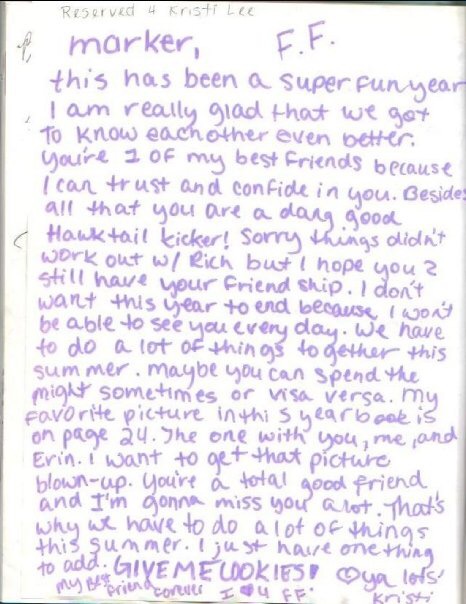 Reserved 4 Kristi Lee
marker, F.F.
this has been a super fun year
I am really glad that we got
to know eachother even better.
you're 1 of my best friends because
I can trust and confide in you. Besides
all that you are a dang good
Hawktail kicker! Sorry things didn't
work out w/ Rich but I hope you 2
still have your friend ship. I don't
want this year to end because I won't
be able to see you every day. We have
to do a lot of things together this
summer. maybe you can spend the
might sometimes or visa versa. My
favorite picture in this yearbook is
on page 24. The one with you, me, and
Erin. I want to get that picture
blown-up. You're a total good friend
and I'm gonna miss you alot. That's
why we have to do a lot of things
this summer. I just have one thing
to add. GIVE ME COOKIES! ♡ ya lots'
my Best friend forever I ♥ 4 FF. Kristi